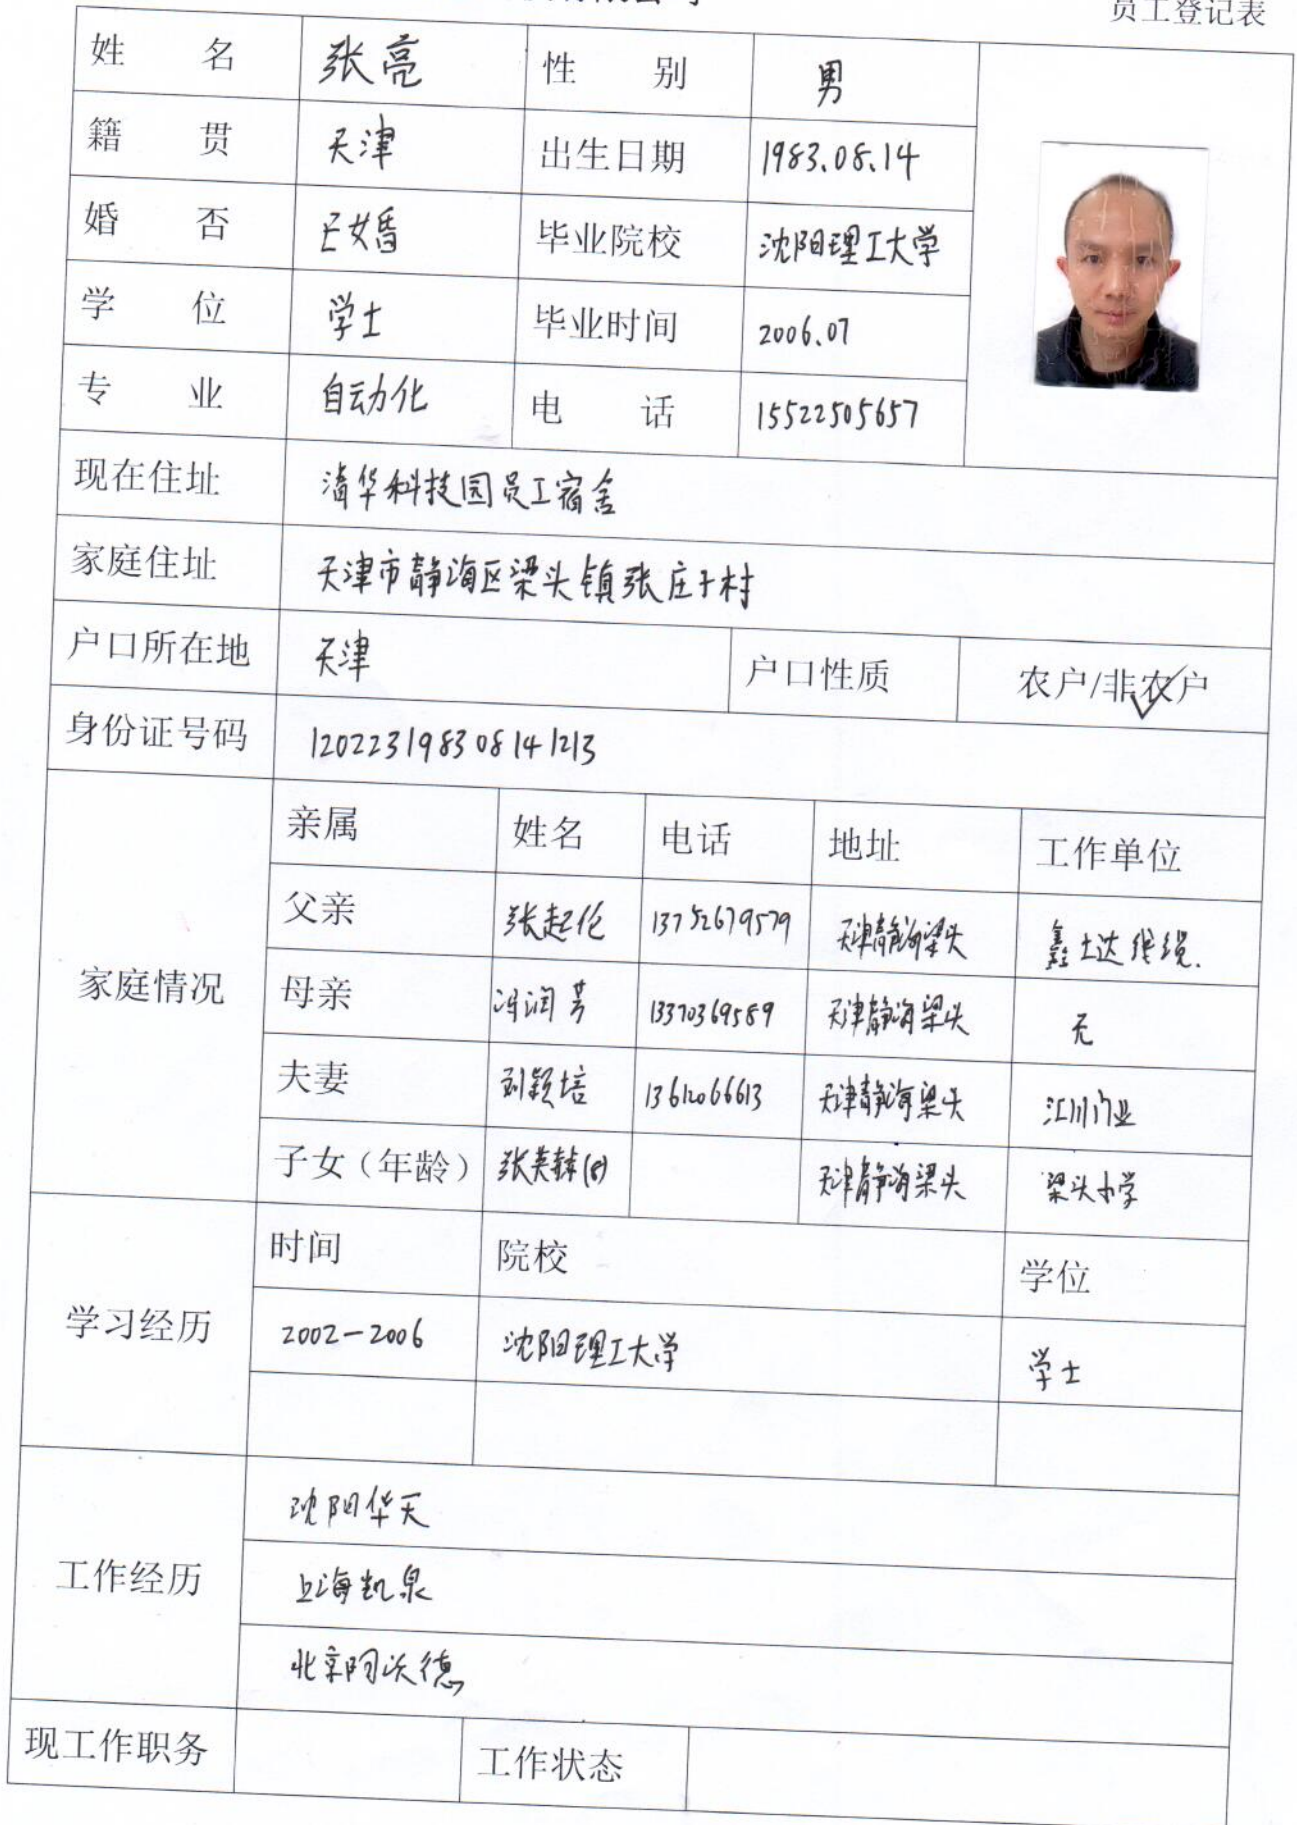 员工登记表
姓 名 张亮 性 别 男
籍 贯 天津 出生日期 1983.08.14
婚 否 已婚 毕业院校 沈阳理工大学
学 位 学士 毕业时间 2006.07
专 业 自动化 电 话 15522505657
现在住址 清华科技园员工宿舍
家庭住址 天津市静海区梁头镇张庄子村
户口所在地 天津 户口性质 农户/非农户
身份证号码 120223198308141213
家庭情况
亲属 姓名 电话 地址 工作单位
父亲 张起伦 13752679579 天津静海梁头 鑫士达线缆.
母亲 冯润芳 13370369589 天津静海梁头 无
夫妻 刘颖培 13612066613 天津静海梁头 汇川门业
子女（年龄） (8) 天津静海梁头 梁头小学
学习经历
时间 院校 学位
2002-2006 沈阳理工大学 学士
工作经历
沈阳华天
上海凯泉
北京阿沃德
现工作职务 工作状态